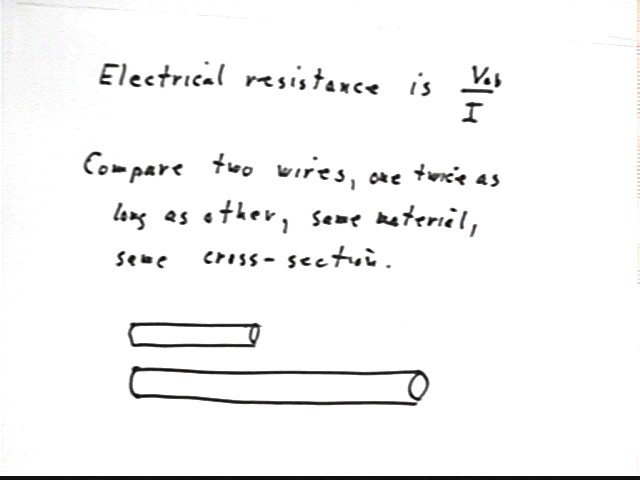 Electrical resistance is Vab
I
Compare two wires, one twice as
long as other, same material,
same cross-section.